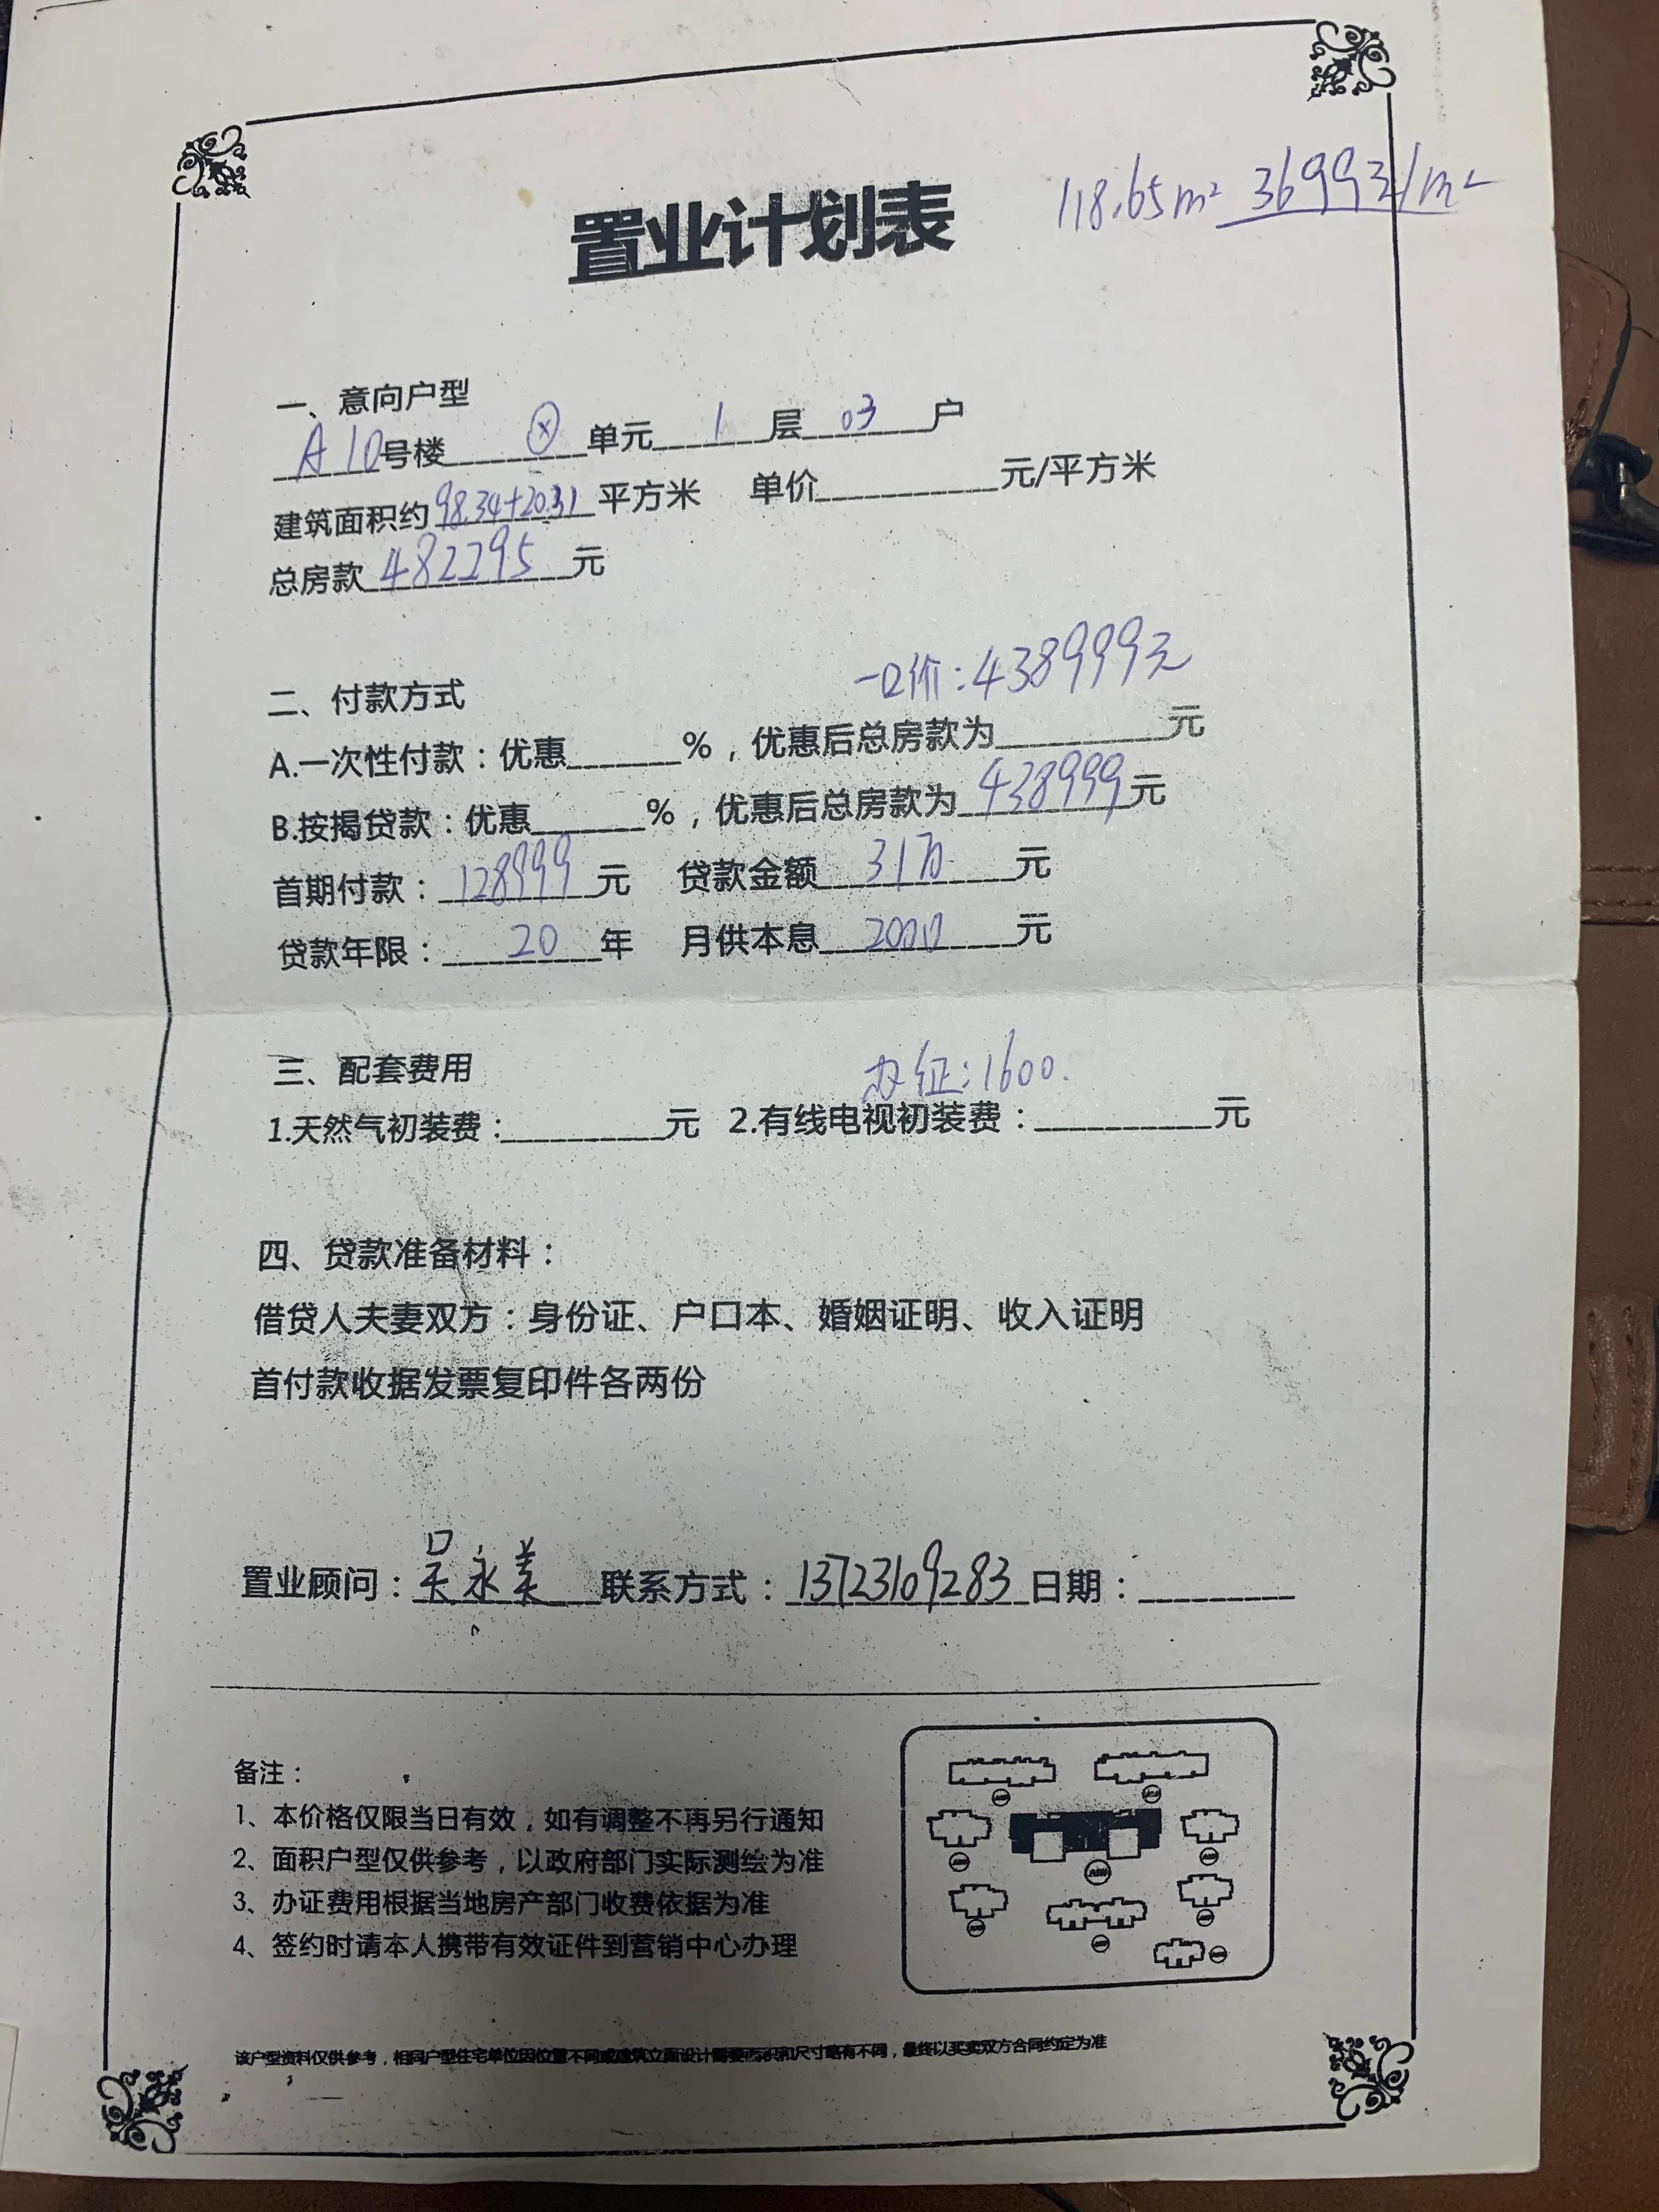 置业计划表
118.65m² 3699元/m²
一、意向户型
A10号楼 ⓧ 单元 1 层 03 户
建筑面积约 98.34+20.31 平方米 单价 元/平方米
总房款 482295 元
一口价:438999元
二、付款方式
A.一次性付款:优惠 %,优惠后总房款为 元
B.按揭贷款:优惠 %,优惠后总房款为 438999 元
首期付款: 128999 元 贷款金额 31万 元
贷款年限: 20 年 月供本息 2000 元
办证:1600.
三、配套费用
1.天然气初装费: 元 2.有线电视初装费: 元
四、贷款准备材料:
借贷人夫妻双方:身份证、户口本、婚姻证明、收入证明
首付款收据发票复印件各两份
置业顾问: 吴永美 联系方式: 13723109283 日期:
备注:
1、本价格仅限当日有效,如有调整不再另行通知
2、面积户型仅供参考,以政府部门实际测绘为准
3、办证费用根据当地房产部门收费依据为准
4、签约时请本人携带有效证件到营销中心办理
该户型资料仅供参考,相同户型住宅单位因位置不同或建筑立面设计需要面积和尺寸略有不同,最终以买卖双方合同约定为准